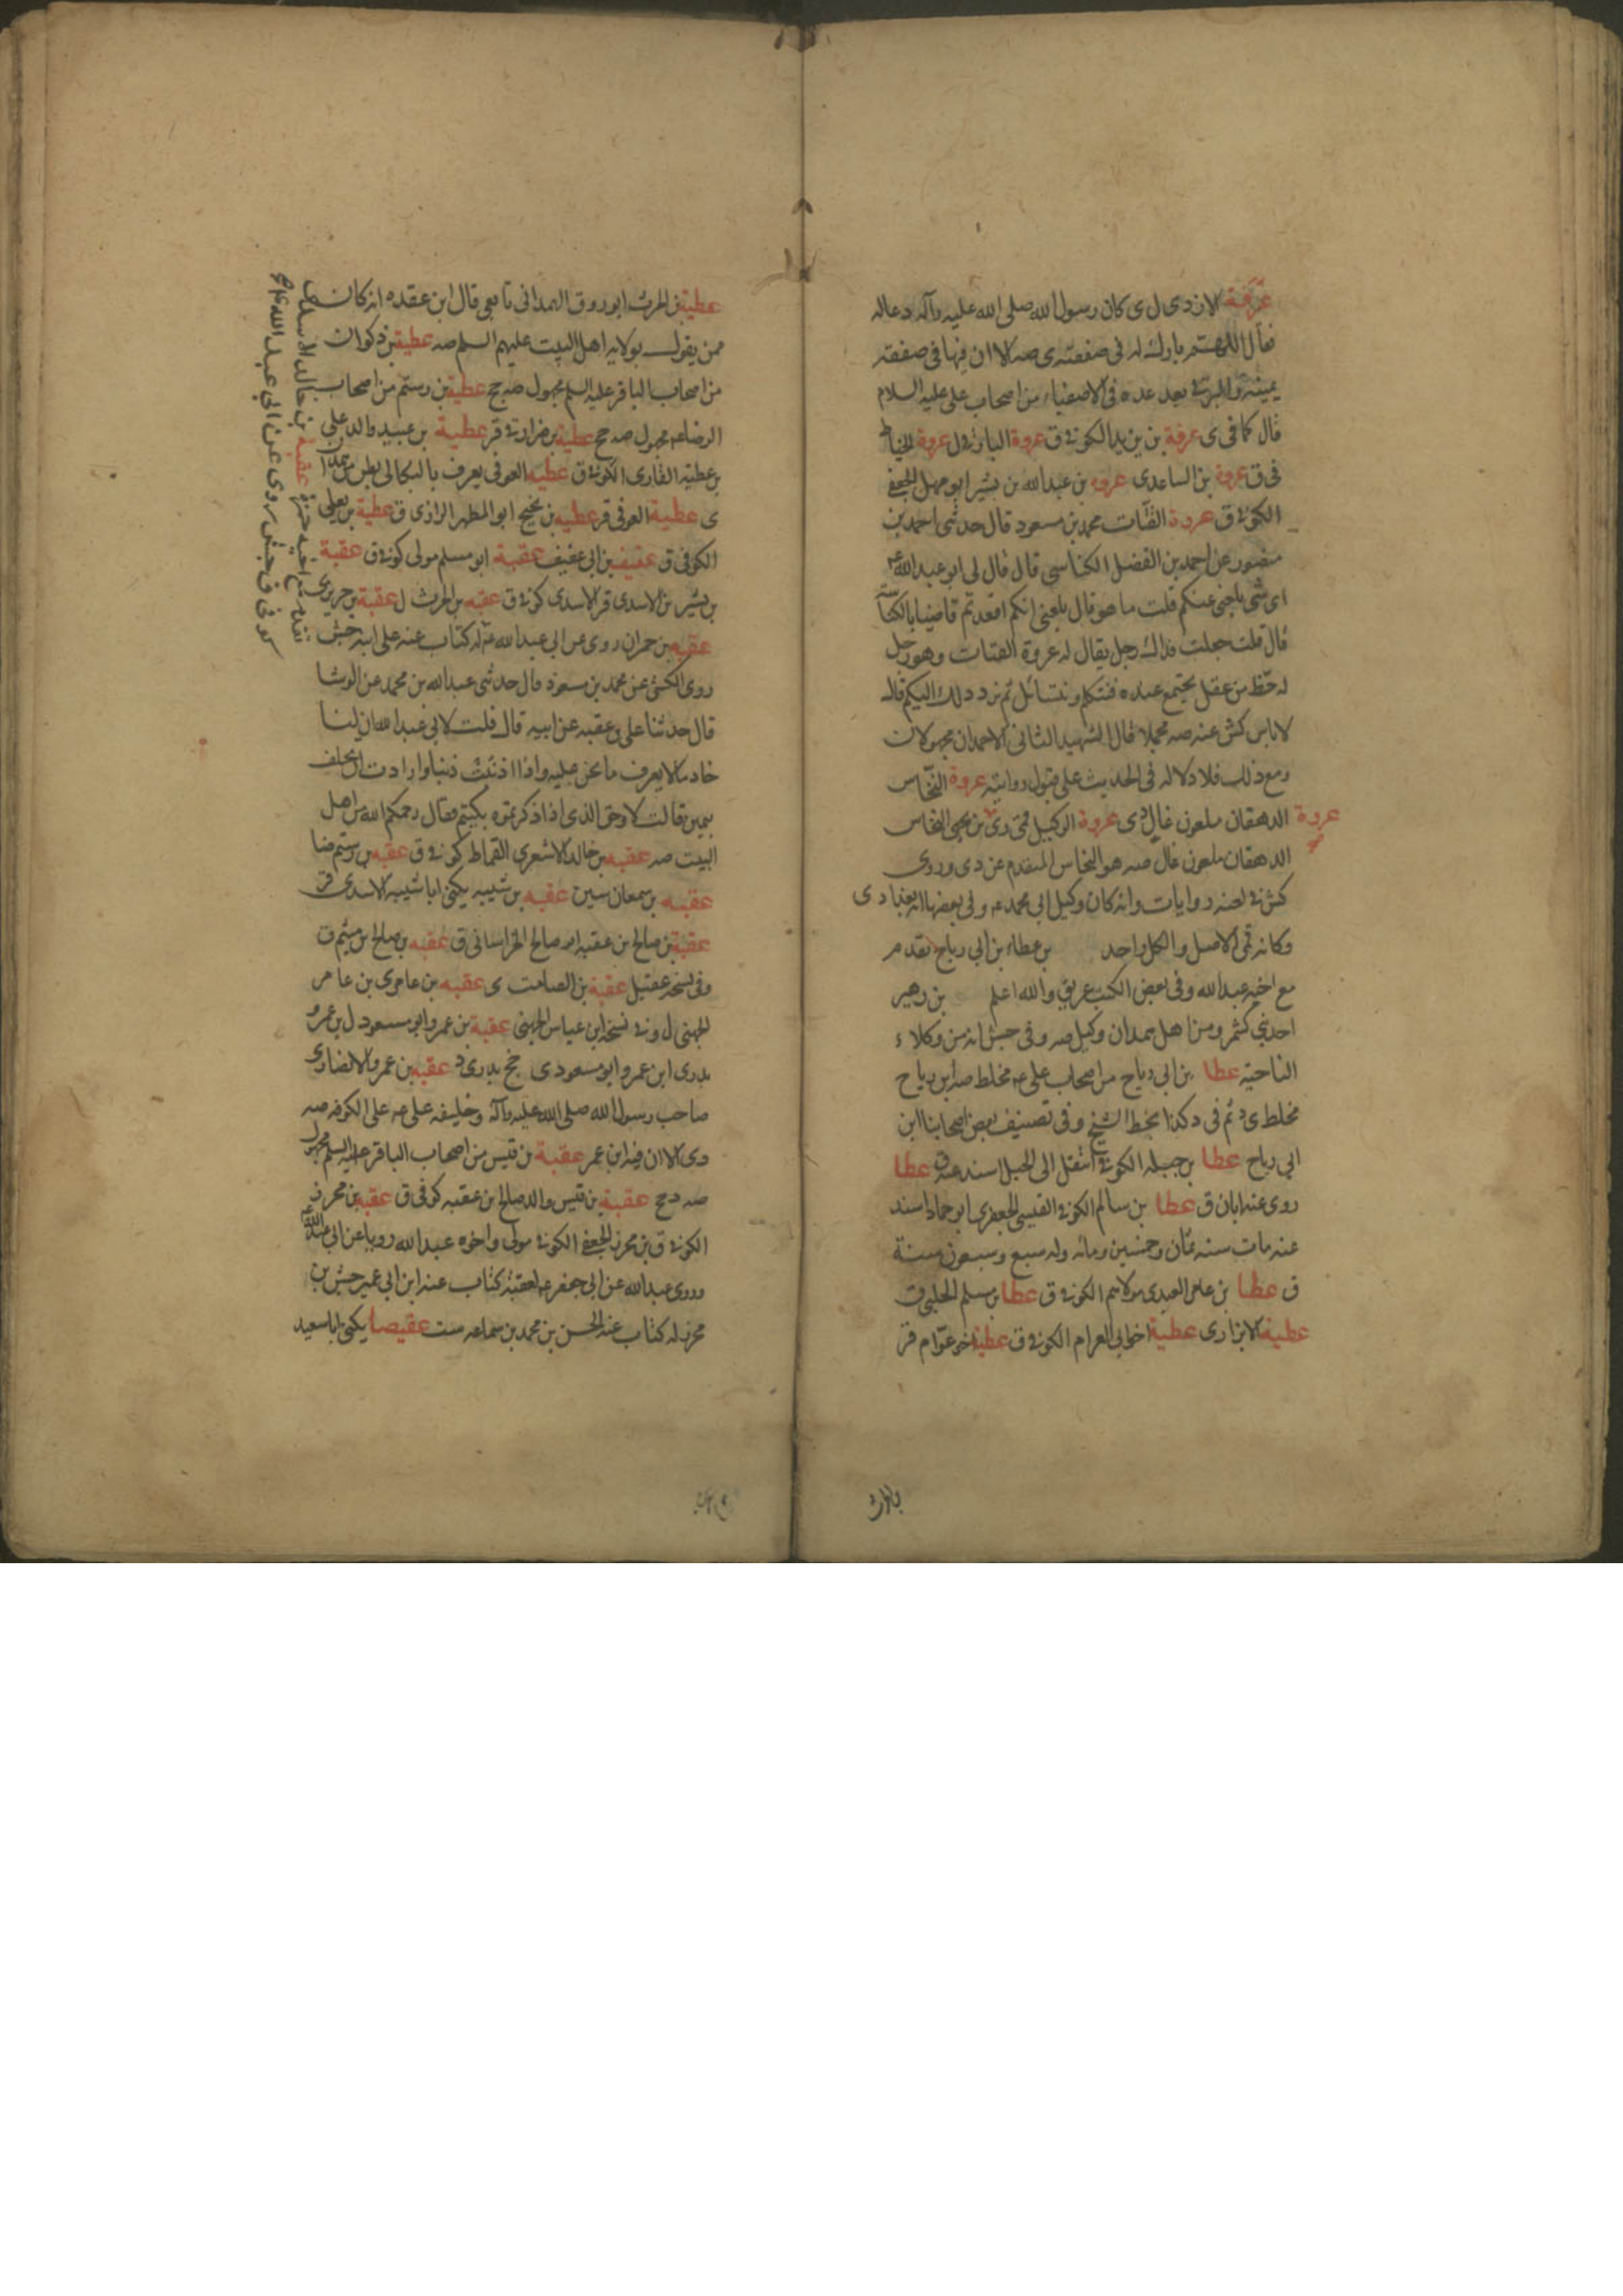 عرفة الازدی ل ی کان رسول الله صلی الله علیه وآله دعا له
فقال اللهم بارك له فی صفقته ی صه الا ان فیها فی صفقة
یمینه والبرقی بعد عده فی الاصفیاء من اصحاب علی علیه السلام
قال کما فی ی عرفة بن یزید الکوفی ق عروة البارقی ل عروة الخیاط
فی ق عروة بن الساعدی عروه بن عبدالله بن بشیر ابو مهل الجعفی
الکوفی ق عروة القتات محمد بن مسعود قال حدثنی احمد بن
منصور عن احمد بن الفضل الکناسی قال قال لی ابو عبدالله ع
ای شی بلغنی عنکم قلت ما هو قال بلغنی انکم اقعدتم قاضیا بالکناسة
قال قلت جعلت فداك رجل یقال له عروة القتات وهو رجل
له حظ من عقل یجتمع عنده فنتکلم ونتسائل ثم نرد ذلك الیکم قال
لا باس کش عنه صه مجملا قال الشهید الثانی الاحمدان مجهولان
ومع ذلك فلا دلاله فی الحدیث علی قبول روایته عروة النخاس
عروة الدهقان ملعون غال دی عروة الوکیل قمی دی بن یحیی النخاس
الدهقان ملعون غال صه هو النخاس المتقدم عن دی وروی
کش فی لعنه روایات وانه کان وکیل ابی محمد ع وفی بعضها انه بغدادی
وکانه قمی الاصل والکل واحد بن عطاء بن ابی رباح تقدم
مع اخیه عبدالله وفی بعض الکتب عریق والله اعلم بن زهیر
احدبنی کشمرو من اهل همدان وکیل صه وفی جش انه من وکلاء
الناحیة عطا بن ابی رباح من اصحاب علی ع مخلط صه ابن ریاح
مخلط ی د ثم فی د کذا بخط الشیخ وفی تصنیف بعض اصحابنا ابن
ابی رباح عطا بن جبله الکوفی انتقل الی الجبل اسند عنه ق عطا
روی عنه ابان ق عطا بن سالم الکوفی القیسی الجعفری ابو حماد اسند
عنه مات سنه ثمان وخمسین ومائه وله سبع وسبعون سنة
ق عطا بن عامر العبدی مولاهم الکوفی ق عطا بن مسلم الحلبی ق
عطیة الابزاری عطیة اخو ابی العرام الکوفی ق عطیة اخو عوام قر
عطیة بن الحرث ابوروق الهمدانی تابعی قال ابن عقده انه کان
ممن یقول بولایه اهل البیت علیهم السلم صه عطیة بن ذکوان
من اصحاب الباقر علیه السلم مجهول صه جح عطیة بن رستم من اصحاب
الرضا ع مجهول صه جح عطیة بن ضرار ق قر عطیة بن عبید والد علی
بن عطیه القاری الکوفی ق عطیه العوفی یعرف بالبکالی بطن من همدان
ی عطیة العوفی قر عطیه بن نجیح ابو المطهر الرازی ق عطیة بن یعلی
الکوفی ق عفیف بن ابی عفیف عقبة ابو مسلم مولی کوفی ق عقبة
بن بشیر بن الاسدی قر الاسدی کوفی ق عقبه بن الحرث ل عقبة بن جریر ی
عقبه بن حمران روی عن ابی عبدالله ع له کتاب عنه علی ابنه جش
روی الکشی عن محمد بن مسعود قال حدثنی عبدالله بن محمد عن الوشا
قال حدثنا علی بن عقبه عن ابیه قال قلت لابی عبدالله ان لنا
خادما لا یعرف ما نحن علیه واذا اذنبت ذنبا وارادت ان یحلف
بیمین قالت لا وحق الذی اذا ذکرتموه بکیتم فقال رحمکم الله من اهل
البیت صه عقبه بن خالد الاشعری القماط کوفی ق عقبه بن رستم ضا
عقبه بن سمعان سین عقبه بن شیبه یکنی ابا شیبه الاسدی قر
عقبة بن صالح بن عقبه ابو صالح الخراسانی ق عقبه بن صالح بن میثم ق
وفی نسخه عقیل عقبة بن الصامت ی عقبه بن عامر ی بن عامر
الجهنی ل وفی نسخه ابن عباس الجهنی عقبة بن عمرو ابو مسعود ل بن عمرو
بدری ابن عمرو ابو مسعود ی جخ بدری د عقبه بن عمرو الانصاری
صاحب رسول الله صلی الله علیه وآله وخلیفه علی ع علی الکوفه صه
دی الا ان فیه ابن عمر عقبة بن قیس من اصحاب الباقر علیه السلم مجهول
صه د جح عقبة بن قیس والد صالح بن عقبه کوفی ق عقبه بن محرز
الکوفی ق بن محرز الجعفی الکوفی مولی واخوه عبدالله رویا عن ابی عبدالله ع
وروی عبدالله عن ابی جعفر ع لعقبة کتاب عنه ابن ابی عمیر جش بن
محرز له کتاب عنه الحسن بن محمد بن سماعه ست عقیصا یکنی ابا سعید
عقبة بن خالد الاسدی
کوفی ق جش روی عن ابی عبدالله ع